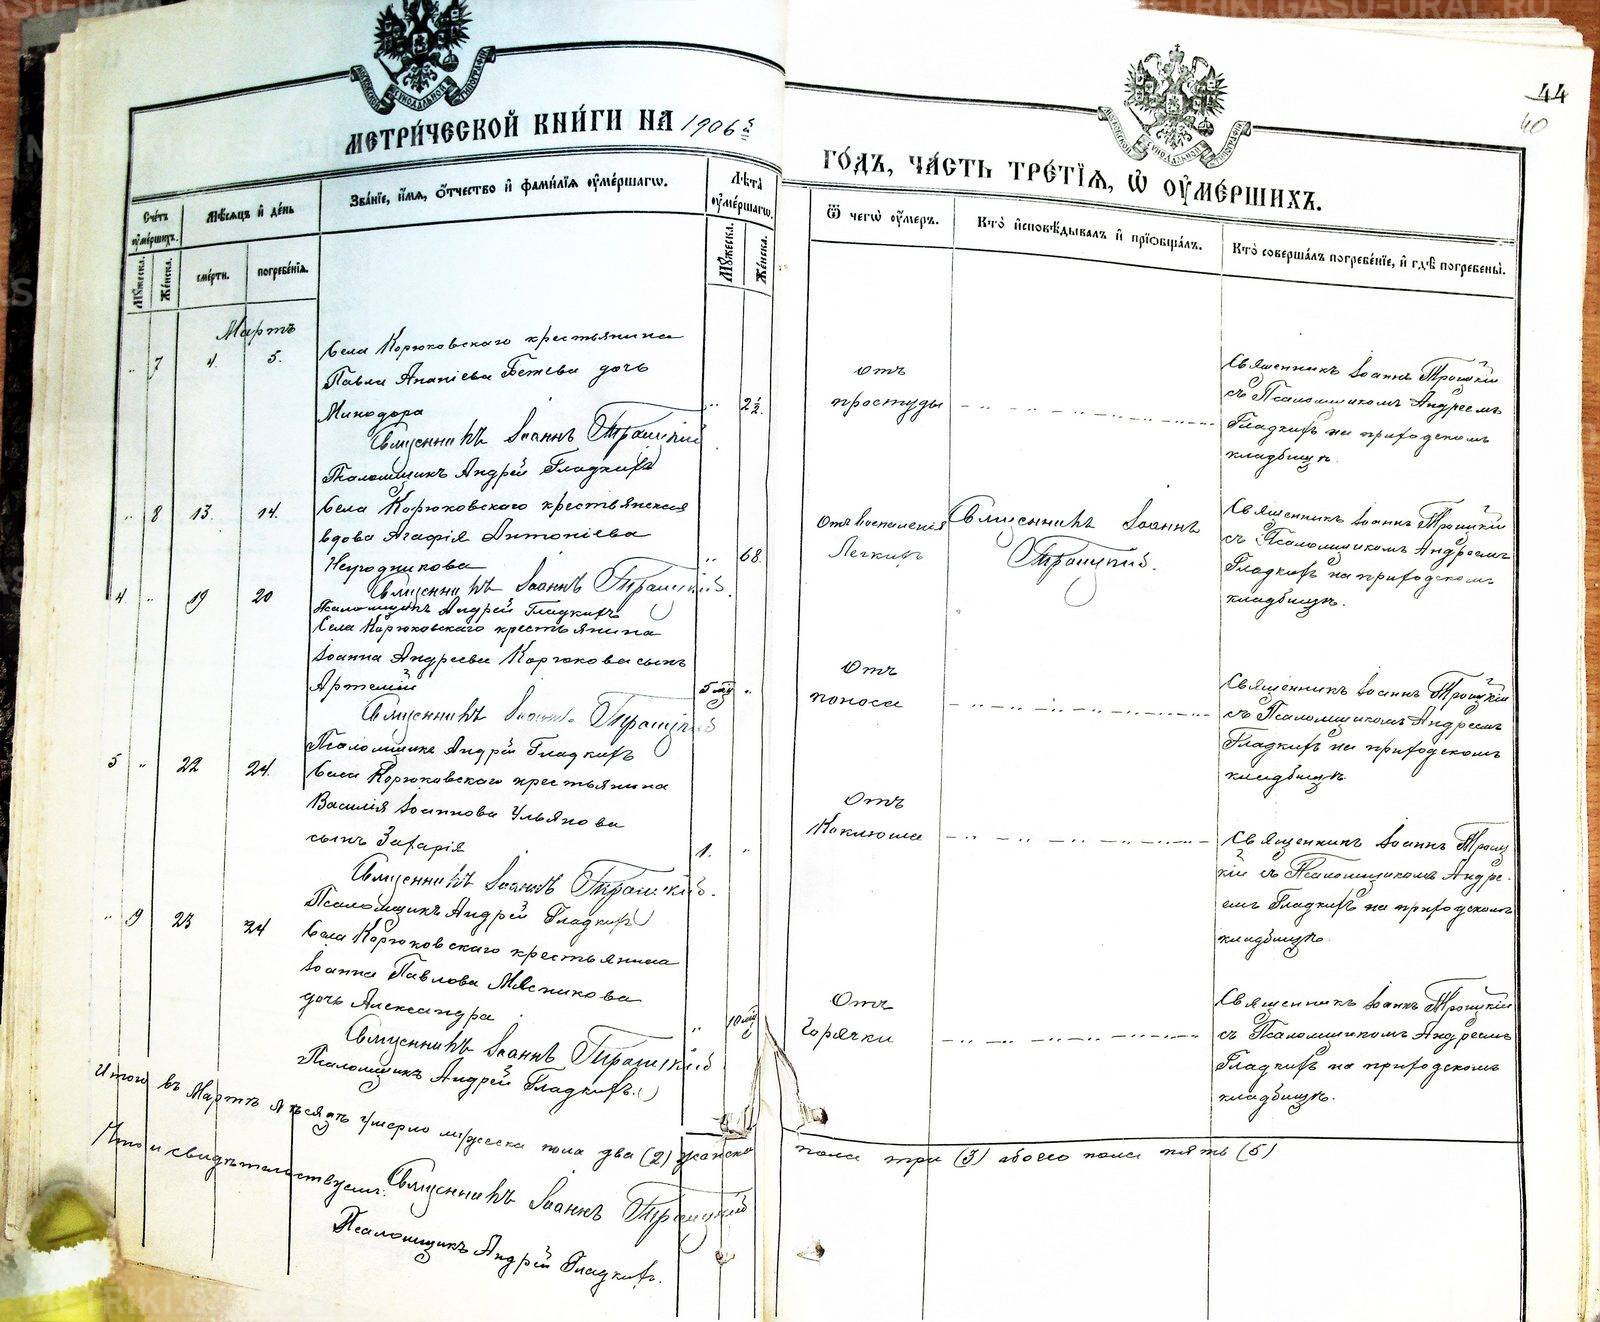 МЕТРИ́ЧЕСКОЙ КНИ́ГИ НА 1906й
ГО́ДЪ, ЧА́СТЬ ТРЕ́ТІѦ, Ѡ҆ ОУ҆МЕ́РШИХЪ.
44
40
Сче́тъ оу҆ме́ршихъ.
Мѣ́сяцъ и҆ де́нь
Зва́нїе, и҆́мѧ, ѻ҆́тчество и҆ фами́лїѧ оу҆ме́ршагѡ.
Лѣ́та оу҆ме́ршагѡ.
Ѿ чегѡ̀ оу҆́меръ.
Кто̀ и҆сповѣ́дывалъ и҆ прїѡбща́лъ.
Кто̀ соверша́лъ погребе́нїе, и҆ гдѣ̀ погребены̀.
Мꙋ́жеска.
Же́нска.
сме́рти.
погребе́нїѧ.
Мꙋ́жеска.
Же́нска.
Мартъ
" 7 4. 5.
Села Корюковскаго крестьянина
Павла Ананіева Бетева дочь
Минодора " 2½.
Священникъ Іоаннъ Троицкій
Псаломщикъ Андрей Гладкихъ
отъ
простуды
Священникъ Іоаннъ Троицкій
съ Псаломщикомъ Андреемъ
Гладкихъ на приходскомъ
кладбищѣ.
" 8 13. 14.
Села Корюковскаго крестьянская
вдова Агафія Антоніева
" 68.
Священникъ Іоаннъ Троицкій.
Псаломщикъ Андрей Гладкихъ
Отъ воспаленія
Легкихъ
Священникъ Іоаннъ
Троицкій.
Священникъ Іоаннъ Троицкій
съ Псаломщикомъ Андреемъ
Гладкихъ на приходскомъ
кладбищѣ.
4. " 19 20
Села Корюковскаго крестьянина
Іоанна Андреева Корюкова сынъ
Артемій 5 мѣ "
Священникъ Іоаннъ Троицкій
Псаломщикъ Андрей Гладкихъ
Отъ
поноса
Священникъ Іоаннъ Троицкій
съ Псаломщикомъ Андреемъ
Гладкихъ на приходскомъ
кладбищѣ
5 " 22 24.
Села Корюковскаго крестьянина
Василія Іоаннова Ульянова
сынъ Захарія 1. "
Священникъ Іоаннъ Троицкій.
Псаломщикъ Андрей Гладкихъ
Отъ
Коклюша
Священникъ Іоаннъ Троиц
кій съ Псаломщикомъ Андре-
емъ Гладкихъ на приходскомъ
кладбищѣ.
" 9 23 24
Села Корюковскаго крестьянина
Іоанна Павлова Мясникова
дочь Александра " 10 мѣ
Священникъ Іоаннъ Троицкій
Псаломщикъ Андрей Гладкихъ.
Отъ
Горячки
Священникъ Іоаннъ Троицкій
съ Псаломщикомъ Андреемъ
Гладкихъ на приходскомъ
кладбищѣ.
Итого въ Мартѣ мѣсяцѣ умерло мужеска пола два (2) женска пола три (3) обоего пола пять (5)
Что и свидѣтельствуемъ: Священникъ Іоаннъ Троицкій
Псаломщикъ Андрей Гладкихъ.
METRIKI.GASU-URAL.RU